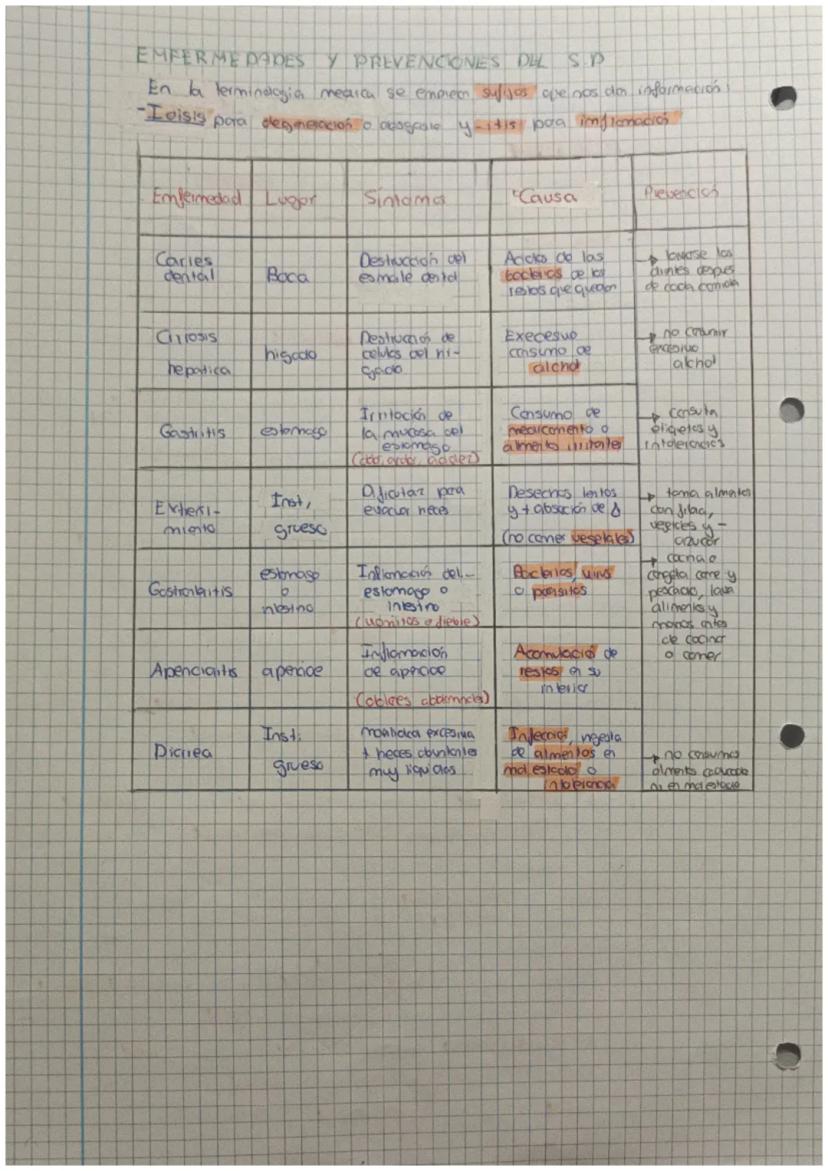 EMFERMEDADES Y PREVENCIONES DEL S.D
En la terminologia medica se emplean sufijos que nos dan información:
para degeneración o desgaste y -itis para imflamación
Emfermedad Lugar Síntoma Causa Prevención
Caries dental
Boca
Destrucción del
esmalte dental
Acidos de las
bacterias de los
restos que quedan
→ lavarse los
dientes despues
de cada comida
Cirrosis
hepatica
higado
Destrucción de
celulas del hi-
gado
Execesivo
consumo de
alchol
→ no consumir
excesivo
alchol
Gastritis
estomago
Irritación de
la mucosa del
estomago
(dolor, ardor, acidez)
Consumo de
medicamento o
alimento irritantes
→ consulta
etiquetas y
intolerancias
Extreñi-
miento
Inst,
grueso
Dificultaz para
evacuar heces
Desechos lentos
y + absorción de
(no comer vegetales)
→ toma alimentos
con fibra,
vegetales y -
azucar
estomago
o
intestino
Inflamación del
estomago o
intestino
Bacterias, virus
o parásitos
→ cocina o
congela carne y
pescado, lava
alimentos y
manos antes
de cocinar
o comer
Apendicitis
apendice
Inflamación
de apendice
(dolores abdominales)
Acomulación de
restos en su
interior
Diarrea
Inst.
grueso
excesiva
+ heces abundantes
muy liquidas
Infección, ingesta
de alimentos en
mal estado o
intolerancia
→ no consumas
alimento caducado
ni en mal estado